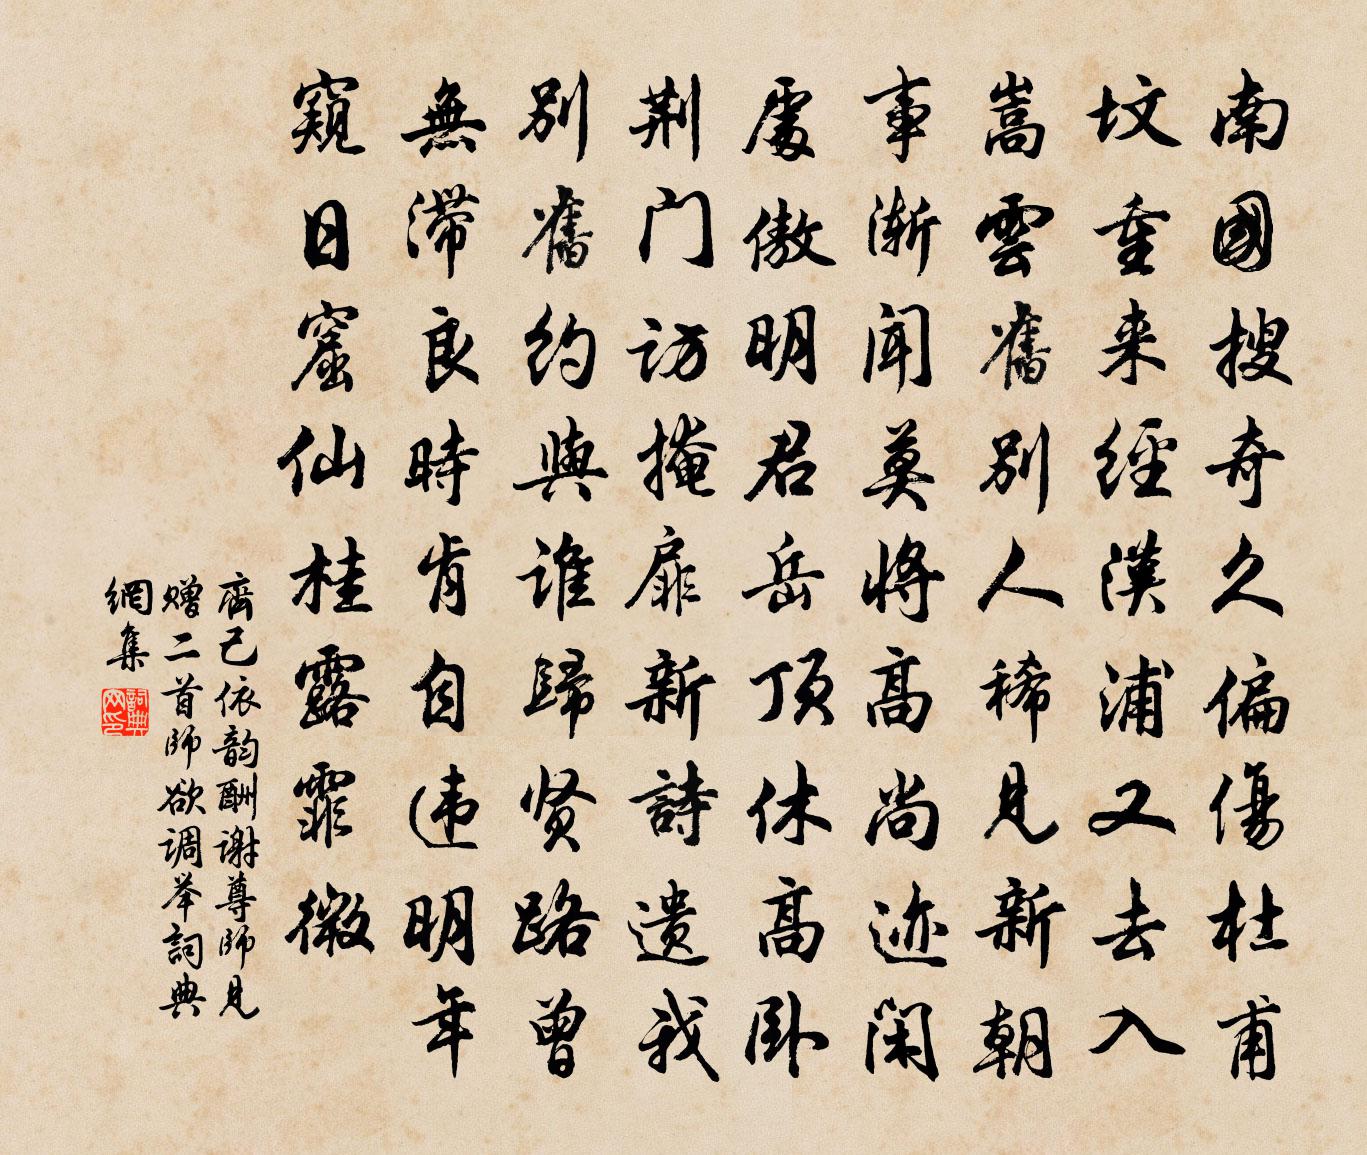 南國搜奇久偏傷杜甫
坟重来經漢浦又去入
嵩雲舊别人稀見新朝
事漸闻莫將高尚迹閑
處傲明君岳頂休高卧
荆门访掩扉新詩遗我
别舊约與誰歸贤路曾
無滞良時肯自违明年
窺日窟仙桂露霏微
齊己依韵酬谢尊師見
赠二首師欲调举詞典
網集
詞典網印